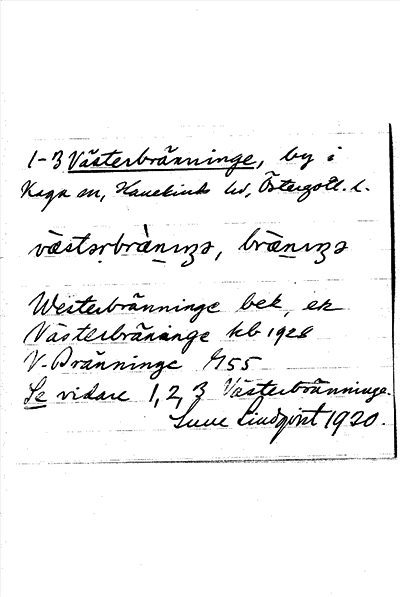 1-3 Västerbränninge, by i
Kaga sn, Hanekinds hd, Östergötl. l.
västərbrànıŋə, bränıŋə
Westerbränninge bek, ek
Västerbränninge kb 1928
V. Bränninge G55
Se vidare 1, 2, 3 Västerbränninge.
Sune Lindqvist 1920.